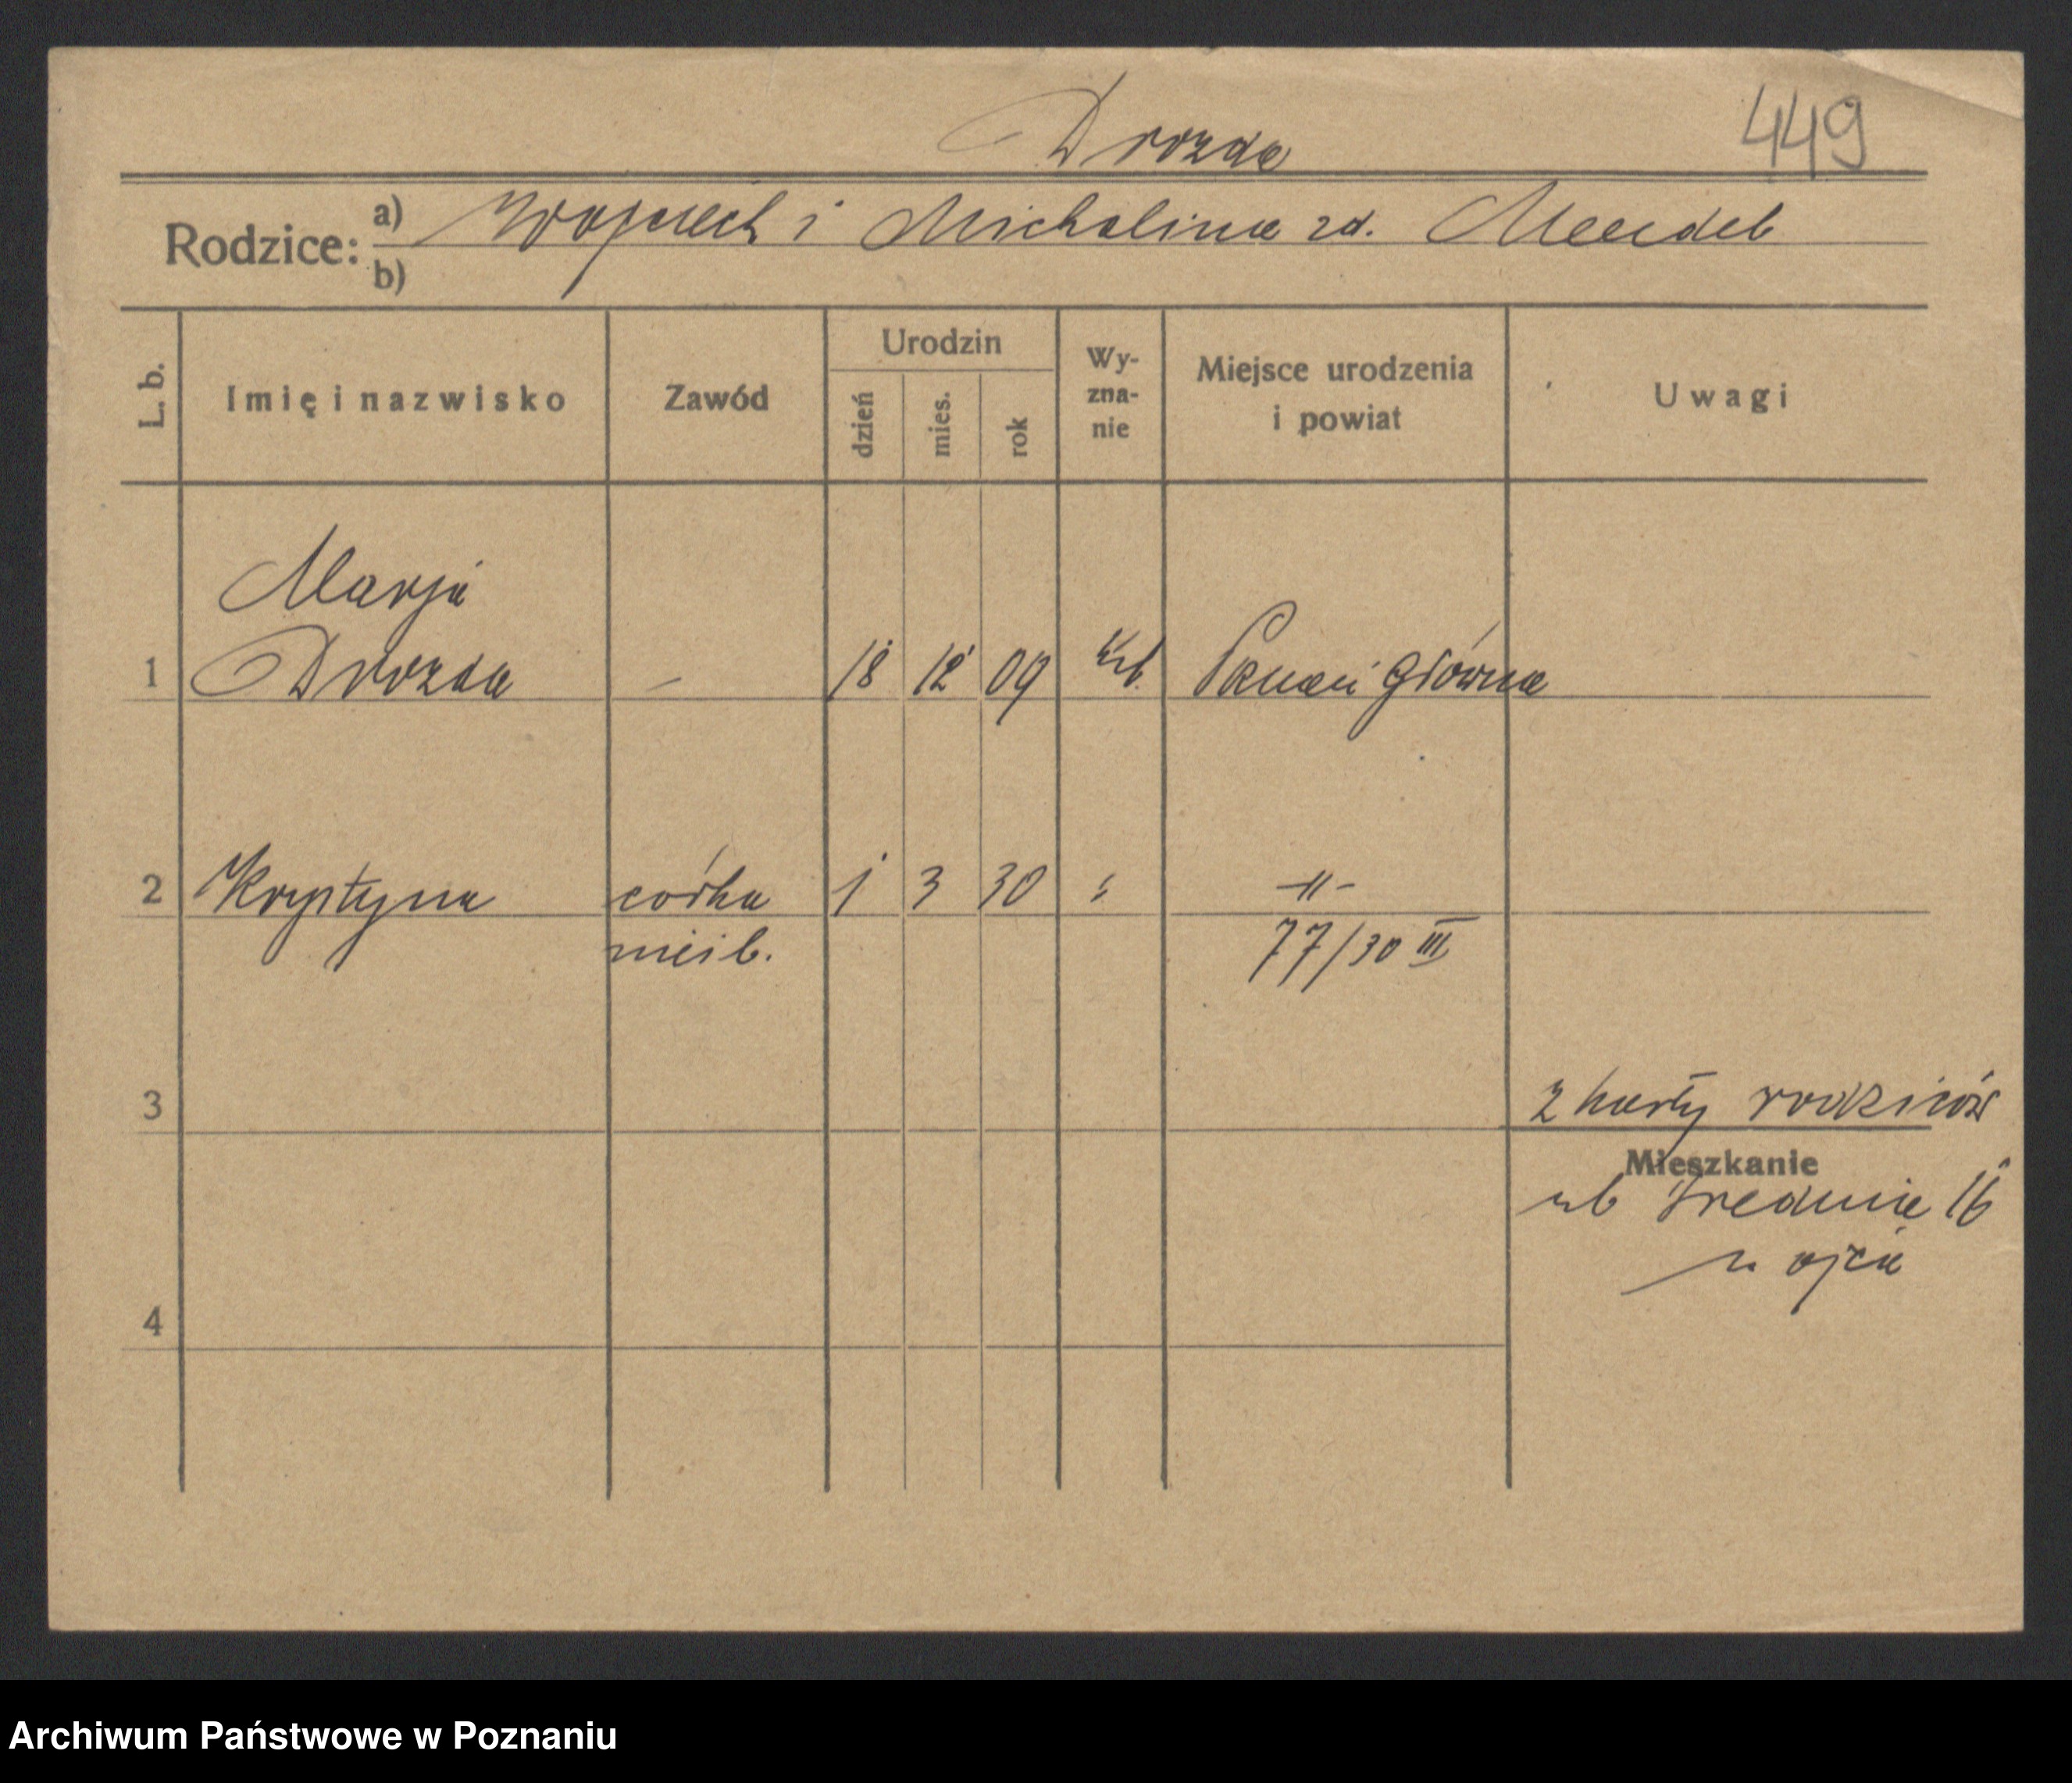 Drozda
449
Rodzice: a) Wojciech i Michalina zd. Mendel
b)
L. b. Imię i nazwisko Zawód Urodzin dzień mies. rok Wy-zna-nie Miejsce urodzenia i powiat Uwagi
Marja
1 Drozda — 18 12 09 kat. Poznań Główna
2 Krystyna córka 1 3 30 " -"-
nieśl. 77/30 III
3 z karty rodziców
Mieszkanie
ul Średnia 16
u ojca
4
Archiwum Państwowe w Poznaniu